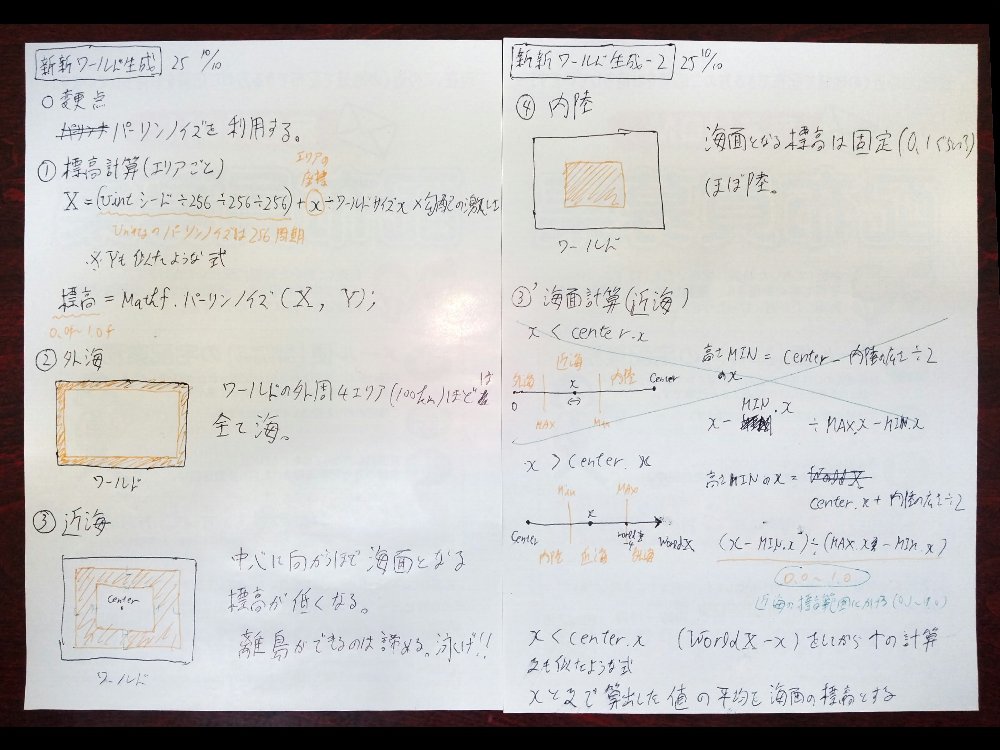 新新ワールド生成 25 10/10
○変更点
パーリンノイズを利用する。
① 標高計算(エリアごと)
エリアの座標
X = (uint シード ÷256 ÷256 ÷256) + x ÷ ワールドサイズx × 勾配の激しさ
Unityのパーリンノイズは256周期
※Yも似たような式
標高 = Mathf.パーリンノイズ(X, Y);
0.0f~1.0f
② 外海
ワールドの外周4エリア(100たん)ほどは
全て海。
ワールド
③ 近海
中心に向かうほど海面となる
標高が低くなる。
離島ができるのは諦める。泳げ!!
center
ワールド
新新ワールド生成-2 25 10/10
④ 内陸
海面となる標高は固定(0.1くらい?)
ほぼ陸。
ワールド
③' 海面計算(近海)
x < center.x
高さMIN = center - 内陸の広さ÷2
のx
外海 近海 内陸
x
0 Center
MAX
x - MIN.x ÷ MAX.x - MIN.x
x > center.x
高さMINのx =
center.x + 内陸の広さ÷2
Min MAX
x
Center WorldX
内陸 近海 外海
(x - MIN.x) ÷ (MAX.x - MIN.x)
0.0~1.0
近海の標高範囲にかける
x < center.x (WorldX - x) をしてから↑の計算
zも似たような式
xとzで算出した値の平均を海面の標高とする